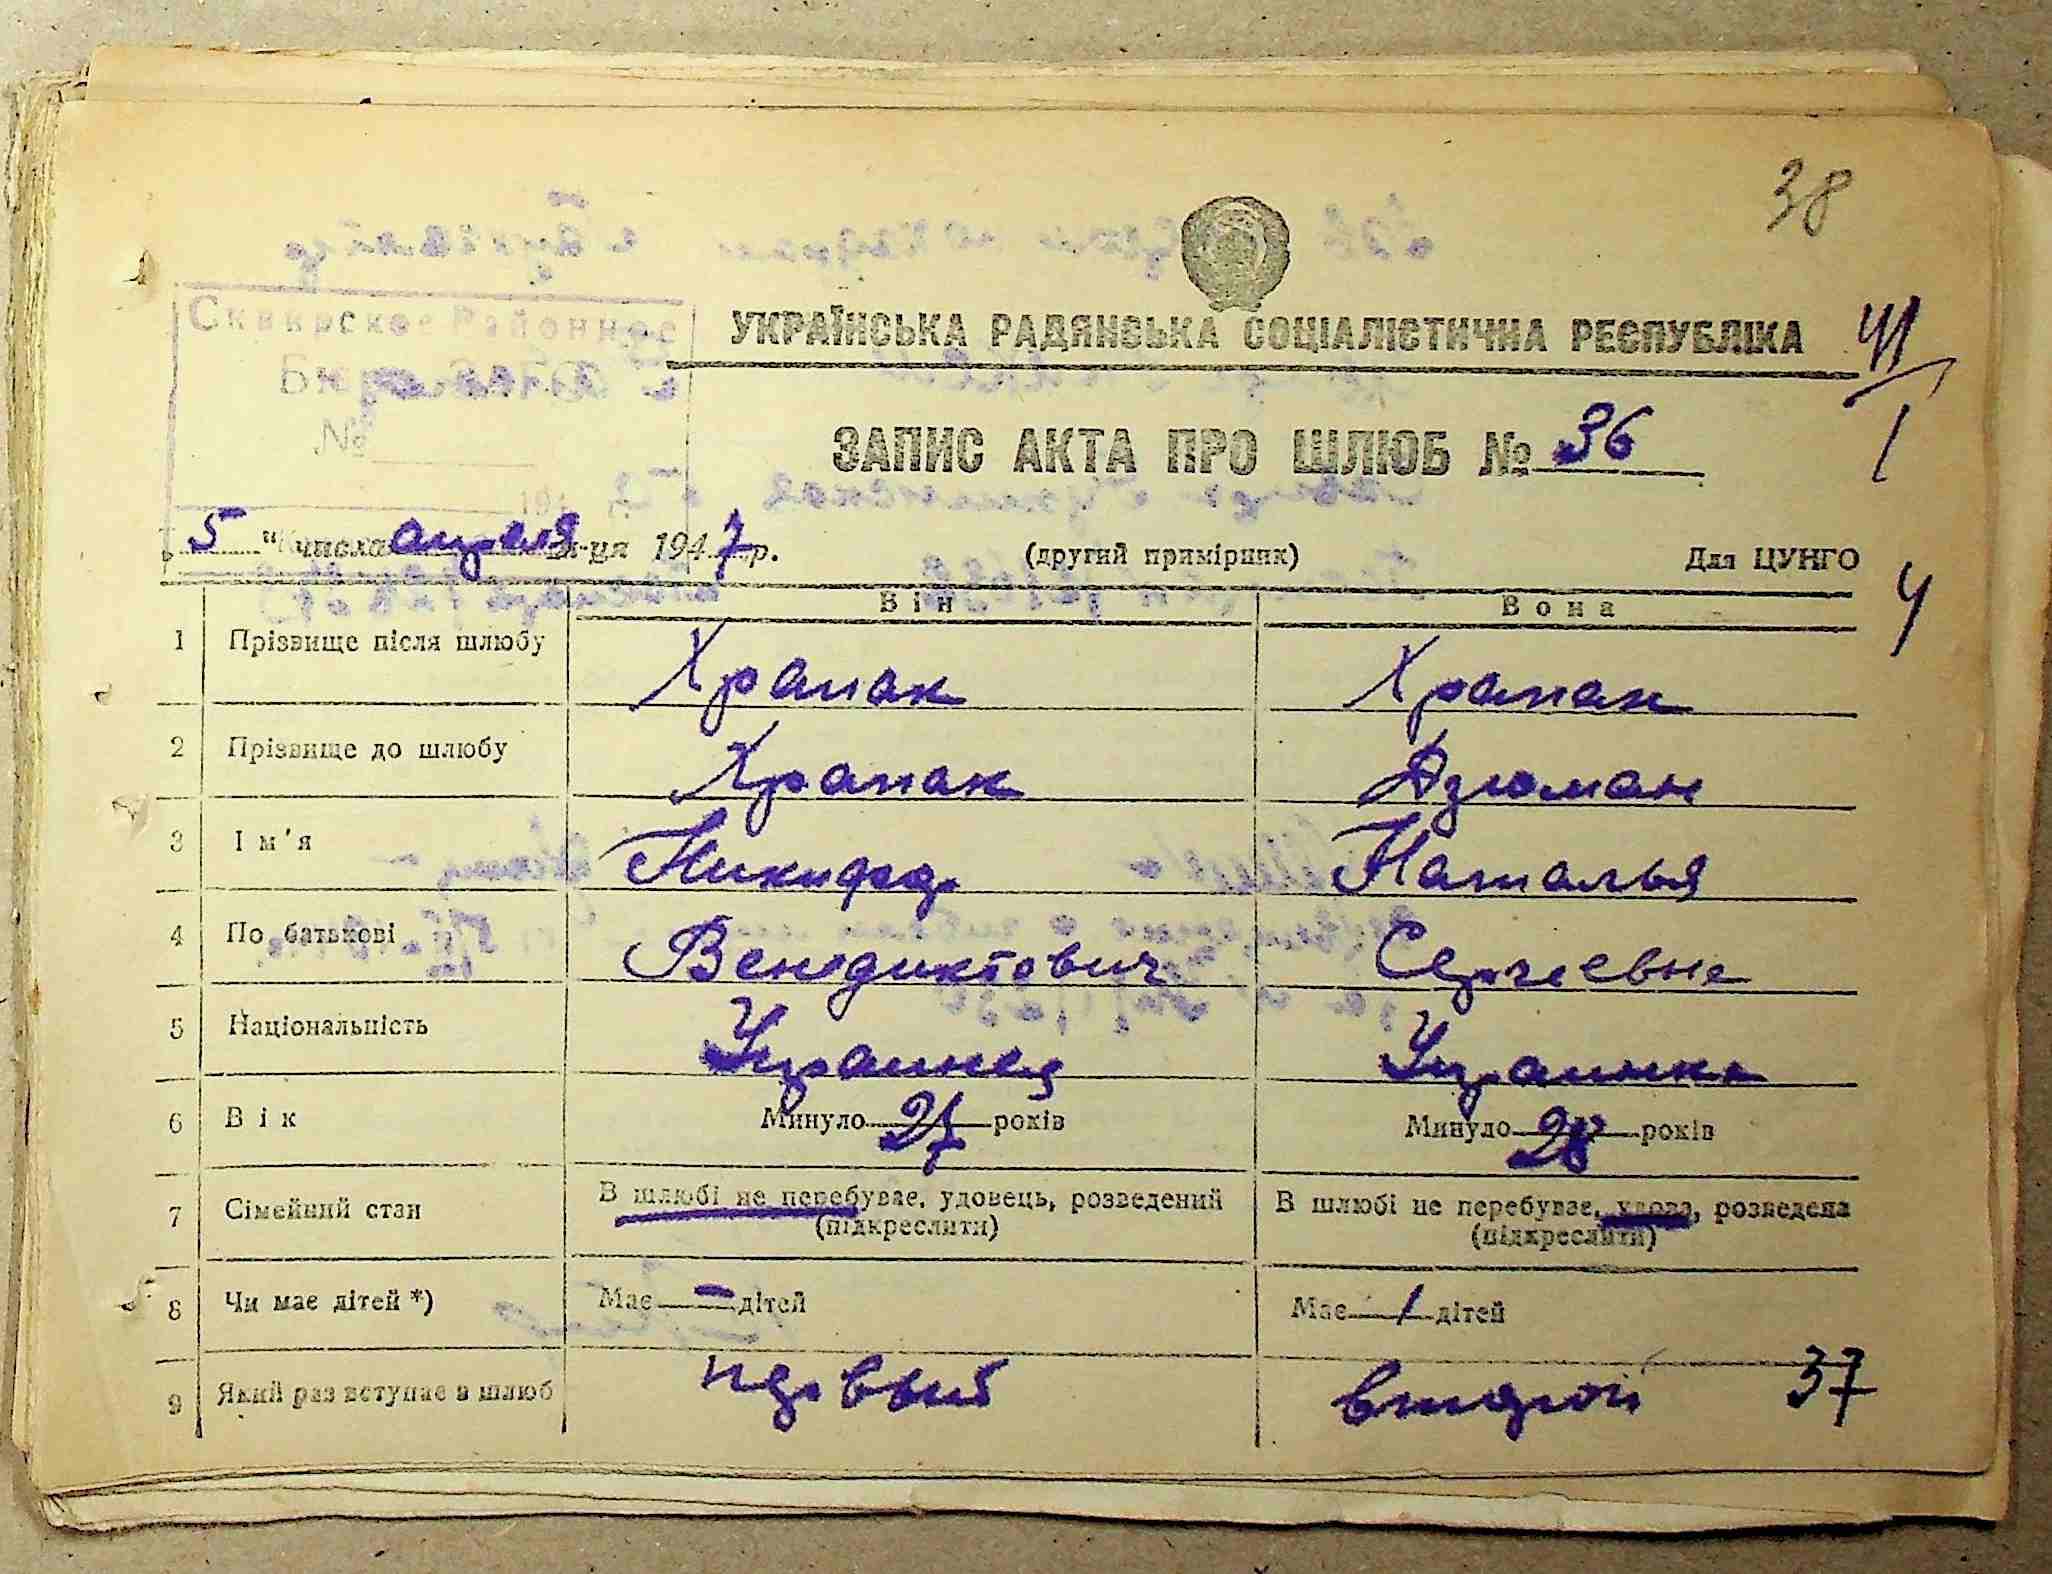 38
УКРАЇНСЬКА РАДЯНСЬКА СОЦІАЛІСТИЧНА РЕСПУБЛІКА
41
1
Сквирское Районное
Бюро
№
ЗАПИС АКТА ПРО ШЛЮБ № 36
194
„ 5 " числа апреля м-ця 1947 р. (другий примірник) Для ЦУНГО
Він Вона
ч
1 Прізвище після шлюбу Храпак Храпак
2 Прізвище до шлюбу Храпак Дзюман
3 Ім'я Никифор Наталья
4 По батькові Венедиктович Сергеевна
5 Національність Украинец Украинка
6 Вік Минуло 27 років Минуло 28 років
7 Сімейний стан В шлюбі не перебуває, удовець, розведений В шлюбі не перебуває, удова, розведена
(підкреслити) (підкреслити)
8 Чи має дітей *) Має — дітей Має 1 дітей
9 Який раз вступає в шлюб первый второй 37